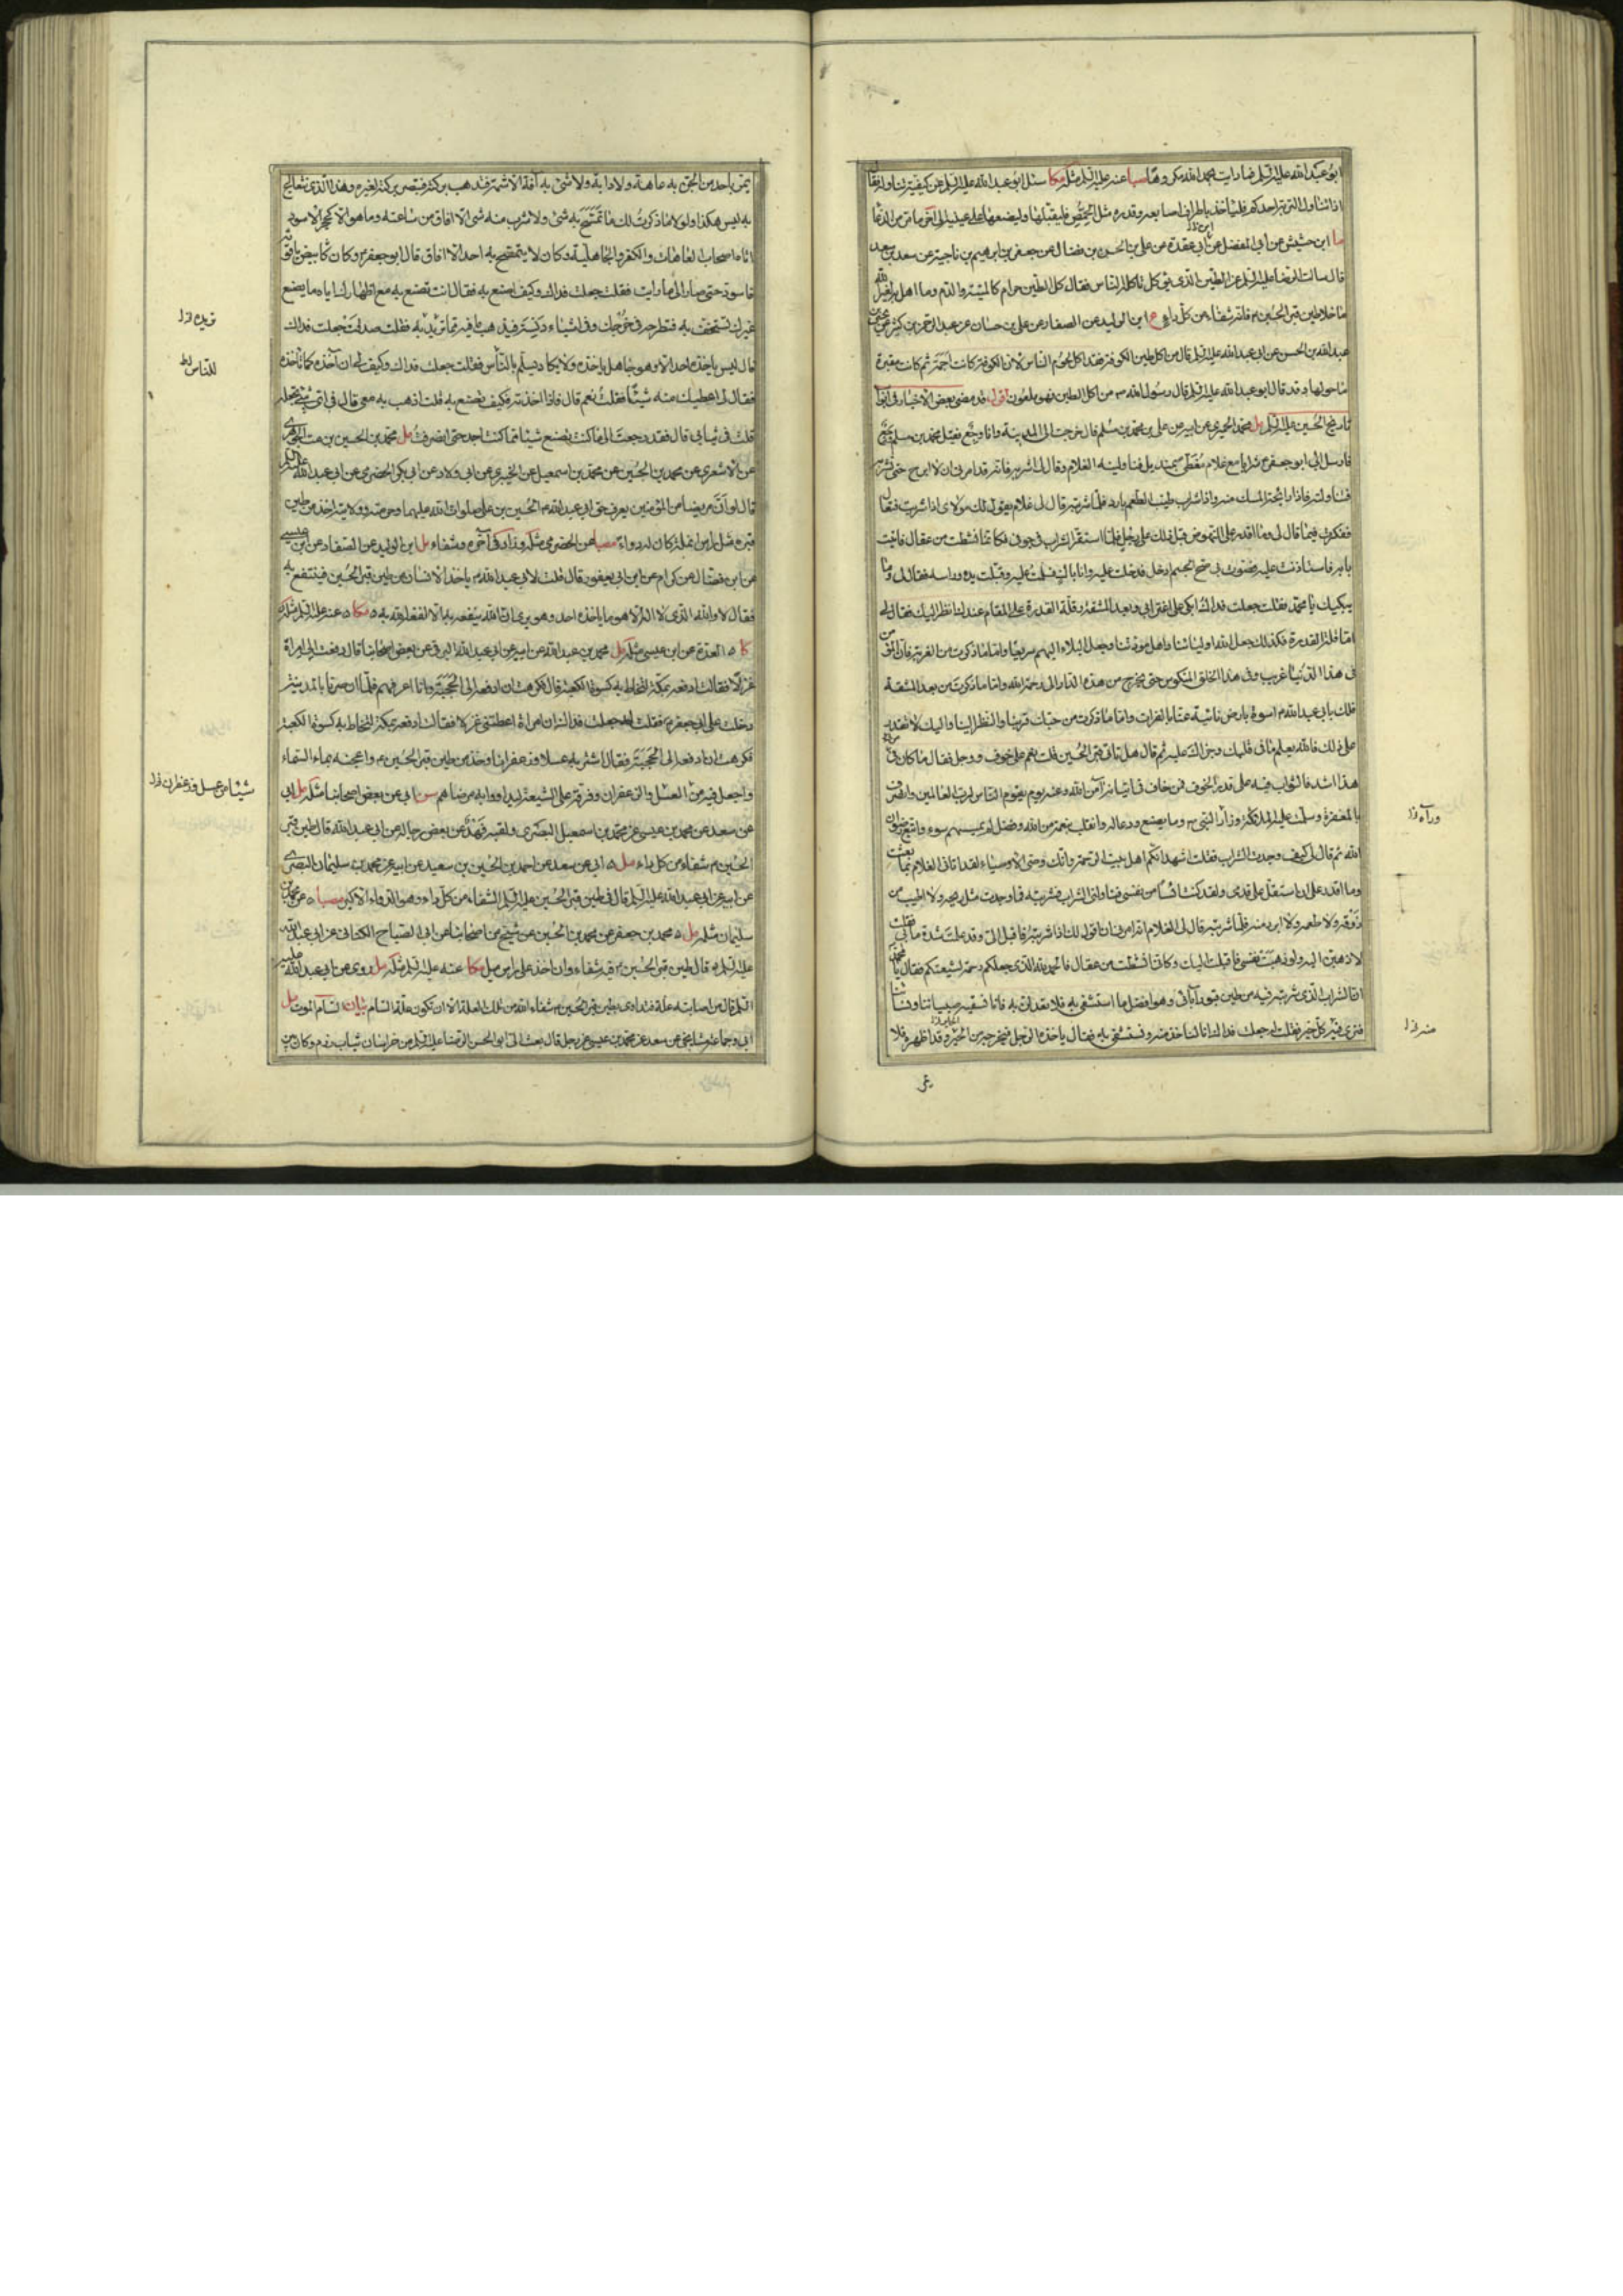 ابو عبد الله عليه السلم فما رايت بحمد الله مكروها صبا عنه عليه السلم مثله مكا سئل ابو عبد الله عليه السلم عن كيفية تناوله فقال
اذا تناول التربة احدكم فلياخذ باطراف اصابعه وقدره مثل الحمصة فليقبلها وليضعها على عينيه الى اخر ما مر من الدعا
ما ابن حشيش عن ابى المفضل عن ابن عقدة عن على بن الحسن بن فضال عن جعفر بن ابرهيم بن ناجية عن سعد بن سعد
قال سالت الرضا عليه السلم عن الطين الذى يؤكل تاكله الناس فقال كل الطين حرام كالميتة والدم وما اهل به لغير الله
ما خلا طين قبر الحسين م فانه شفاء من كل داء ابن الوليد عن الصفار عن على بن حسان عن عبد الرحمن بن كثير عن يحيى بن
عبد الله بن الحسن عن ابى عبد الله عليه السلم قال من اكل طين الكوفة فقد اكل لحوم الناس لان الكوفة كانت اجمة ثم كانت مقبرة
ما حولها وقد قال ابو عبد الله عليه السلم قال رسول الله ص من اكل الطين فهو ملعون اقول قد مضى بعض الاخبار فى ابواب
تاريخ الحسين عليه السلم مل محمد الحميرى عن ابيه عن على بن محمد بن سلم قال خرجت الى المدينة وانا وجع فقيل محمد بن مسلم وجع
فارسل الى ابو جعفر م شرابا مع غلام مغطى بمنديل فناولنيه الغلام وقال لى اشربه فانه قد امرنى ان لا ابرح حتى تشربه
فتناولته فاذا رايحة المسك منه واذا شراب طيب الطعم بارد فلما شربته قال لى غلام يقول لك مولاى اذا شربت فتعال
ففكرت فيما قال لى وما اقدر على النهوض قبل ذلك على رجلى فلما استقر الشراب فى جوفى فكانما نشطت من عقال فاتيت
بابه فاستاذنت عليه فصوت بى صح الجسم ادخل فدخلت عليه وانا باك فسلمت عليه وقبلت يده وراسه فقال لى وما
يبكيك يا محمد فقلت جعلت فداك ابكى على اغترابى وبعد الشقة وقلة القدرة على المقام عندك انظر اليك فقال لى
اما قلة القدرة فكذلك جعل الله اوليائنا واهل مودتنا وجعل البلاء اليهم سريعا واما ما ذكرت من الغربة فان المؤمن
فى هذا الدنيا غريب وفى هذا الخلق المنكوس حتى يخرج من هذه الدار الى رحمة الله واما ما ذكرت من بعد الشقة
فلك بابى عبد الله م اسوة بارض نائية عنا بالفرات واما ما ذكرت من حبك قربنا والنظر الينا وانك لا تقدر
على ذلك فالله يعلم ما فى قلبك وجزاك عليه ثم قال هل تاتى قبر الحسين قلت نعم على خوف ووجل فقال ما كان فى
هذا اشد فالثواب فيه على قدر الخوف فمن خاف فى اتيانه آمن الله روعته يوم يقوم الناس لرب العالمين وانصرف
بالمغفرة وسلمت عليه الملائكة وزار النبى ص وما يصنع ودعا له وانقلب بنعمة من الله وفضل لم يمسسهم سوء واتبع رضوان
الله ثم قال لى كيف وجدت الشراب فقلت اشهد انكم اهل بيت الرحمة وانك وصى الاوصياء لقد اتانى الغلام بما بعثت
وما اقدر على ان استقل على قدمى ولقد كنت ائسا من نفسى فناولنى الشراب فشربته فما وجدت مثل ريحه ولا اطيب من
ذوقه ولا طعمه ولا ابرد منه فلما شربته قال لى الغلام انه امرنى ان اقول لك اذا شربته فاقبل الى وقد علمت شدة ما بى فقلت
لاذهبن اليه ولو ذهبت نفسى فاقبلت اليك وكانما نشطت من عقال فالحمد لله الذى جعلكم رحمة لشيعتكم فقال يا محمد
ان الشراب الذى شربته فيه من طين قبور آبائى وهو افضل ما استشفى به فلا تعدلن به فانا نسقيه صبياننا ونسائنا
فنرى فيه كل خير فقلت له جعلت فداك انا لناخذ منه ونستشفى به فقال ياخذه الرجل فيخرجه من الحير وقد اظهره فلا
وراه خ ل
منه خ ل
يمر
يمر باحد من الجن به عاهة ولا دابة ولا شئ به آفة الا شمه فتذهب بركته فيصير بركته لغيره وهذا الذى نتعالج
به ليس هكذا ولولا ما ذكرت لك ما تمسح به شئ ولا شرب منه شئ الا افاق من ساعته وما هو الا كحجر الاسود
اتاه اصحاب العاهات والكفر والجاهلية وكان لا يتمسح به احد الا افاق قال ابو جعفر م وكان كابيض ياقوتة
فاسود حتى صار الى ما رايت فقلت جعلت فداك وكيف اصنع به فقال انت تصنع به مع اظهارك اياه ما يصنع
غيرك تستخف به فتطرحه فى خرجك وفى اشياء دنسة فيذهب ما فيه مما تريد به فقلت صدقت جعلت فداك
قال ليس ياخذه احد الا وهو جاهل باخذه ولا يكاد يسلم بالناس فقلت جعلت فداك وكيف لى ان آخذه كما تاخذه
فقال لى اعطيك منه شيئا فقلت نعم قال فاذا اخذته فكيف تصنع به قلت اذهب به معى قال فى اى شئ تجعله
قلت فى ثيابى قال فقد رجعت الى ما كنت تصنع
عن الاشعرى عن محمد بن الحسين عن محمد بن اسمعيل عن الخيبرى عن ابى ولاد عن ابى بكر الحضرمى عن ابى عبد الله عليه السلم
قال لو ان مريضا من المؤمنين يعرف حق ابى عبد الله م الحسين بن على صلوات الله عليهما وحرمته وولايته اخذ من طين
قبره مثل راس انملة كان له دواء مصبا عن الحضرمى مثله وزاد فى آخره وشفاء مل ابن الوليد عن الصفار عن ابن عيسى
عن ابن فضال عن كرام عن ابن ابى يعفور قال قلت لابى عبد الله م ياخذ الانسان من طين قبر الحسين فينتفع به
فقال لا والله الذى لا اله الا هو ما ياخذه احد وهو يرى ان الله ينفعه به الا نفعه الله به مكا عنه عليه السلم مثله
كا العدة عن ابن عيسى مثله مل محمد بن عبد الله عن ابيه عن ابى عبد الله البرقى عن بعض اصحابنا قال دفعت الى امراة
غزلا فقالت ادفعه بمكة ليخاط به كسوة الكعبة قال فكرهت ان ادفعه الى الحجبة وانا اعرفهم فلما ان صرنا بالمدينة
دخلت على ابى جعفر م فقلت له جعلت فداك ان امراة اعطتنى غزلا فقالت ادفعه بمكة ليخاط به كسوة الكعبة
فكرهت ان ادفعه الى الحجبة فقال اشتر به عسلا وزعفرانا وخذ من طين قبر الحسين م واعجنه بماء السماء
واجعل فيه من العسل والزعفران وفرقه على الشيعة ليداووا به مرضاهم سن ابى عن بعض اصحابنا مثله مل ابى
عن سعد عن محمد بن عيسى عن محمد بن اسمعيل البصرى ولقبه فهد عن بعض رجاله عن ابى عبد الله قال طين قبر
الحسين م شفاء من كل داء مل ابى عن سعد عن احمد بن الحسين بن سعيد عن ابيه عن محمد بن سليمان البصرى
عن ابيه عن ابى عبد الله عليه السلم قال فى طين قبر الحسين عليه السلم الشفاء من كل داء وهو الدواء الاكبر مصبا عن محمد بن
سليمان مثله مل محمد بن جعفر عن محمد بن الحسين عن شيخ من اصحابنا عن ابى الصباح الكنانى عن ابى عبد الله
عليه السلم قال طين قبر الحسين م فيه شفاء وان اخذ على راس ميل مكا عنه عليه السلم مثله مل روى عن ابى عبد الله عليه
السلم قال من اصابته علة فتداوى بطين قبر الحسين م شفاه الله من تلك العلة الا ان تكون علة السام بيان السام الموت مل
ابى وجماعة مشايخى عن سعد عن محمد بن عيسى عن رجل قال بعث الى ابو الحسن الرضا عليه السلم من خراسان ثياب رزم وكان بين
تريده خ ل
للناس ظ
شيئا من عسل وزعفران خ ل